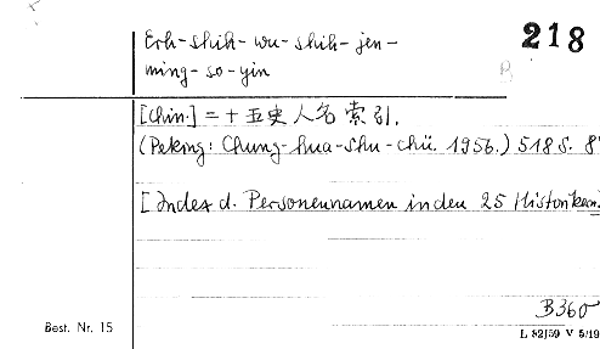 Erh-shih-wu-shih-jen-
218
ming-so-yin
[Chin.] = 二十五史人名索引.
(Peking: Chung-hua-shu-chü. 1956.) 518 S. 8°
[Index d. Personennamen in den 25 Historikern.
B360
Best. Nr. 15
L 82J59 V 5/19